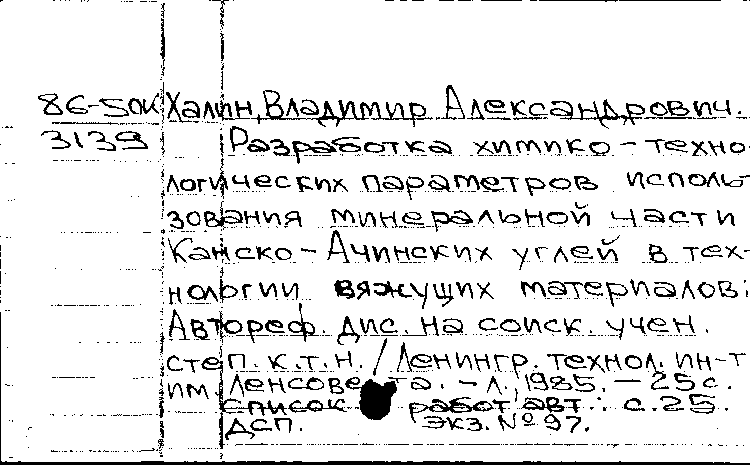 86-50К Халин, Владимир Александрович.
3139 Разработка химико-техно-
логических параметров исполь-
зования минеральной части
Канско-Ачинских углей в тех-
нологии вяжущих материалов:
Автореф. дис. на соиск. учен.
степ. к.т.н. / Ленингр. технол. ин-т
им. Ленсовета. - Л., 1985. - 25 с.
Список работ авт.: с. 25.
ДСП. Экз. № 97.